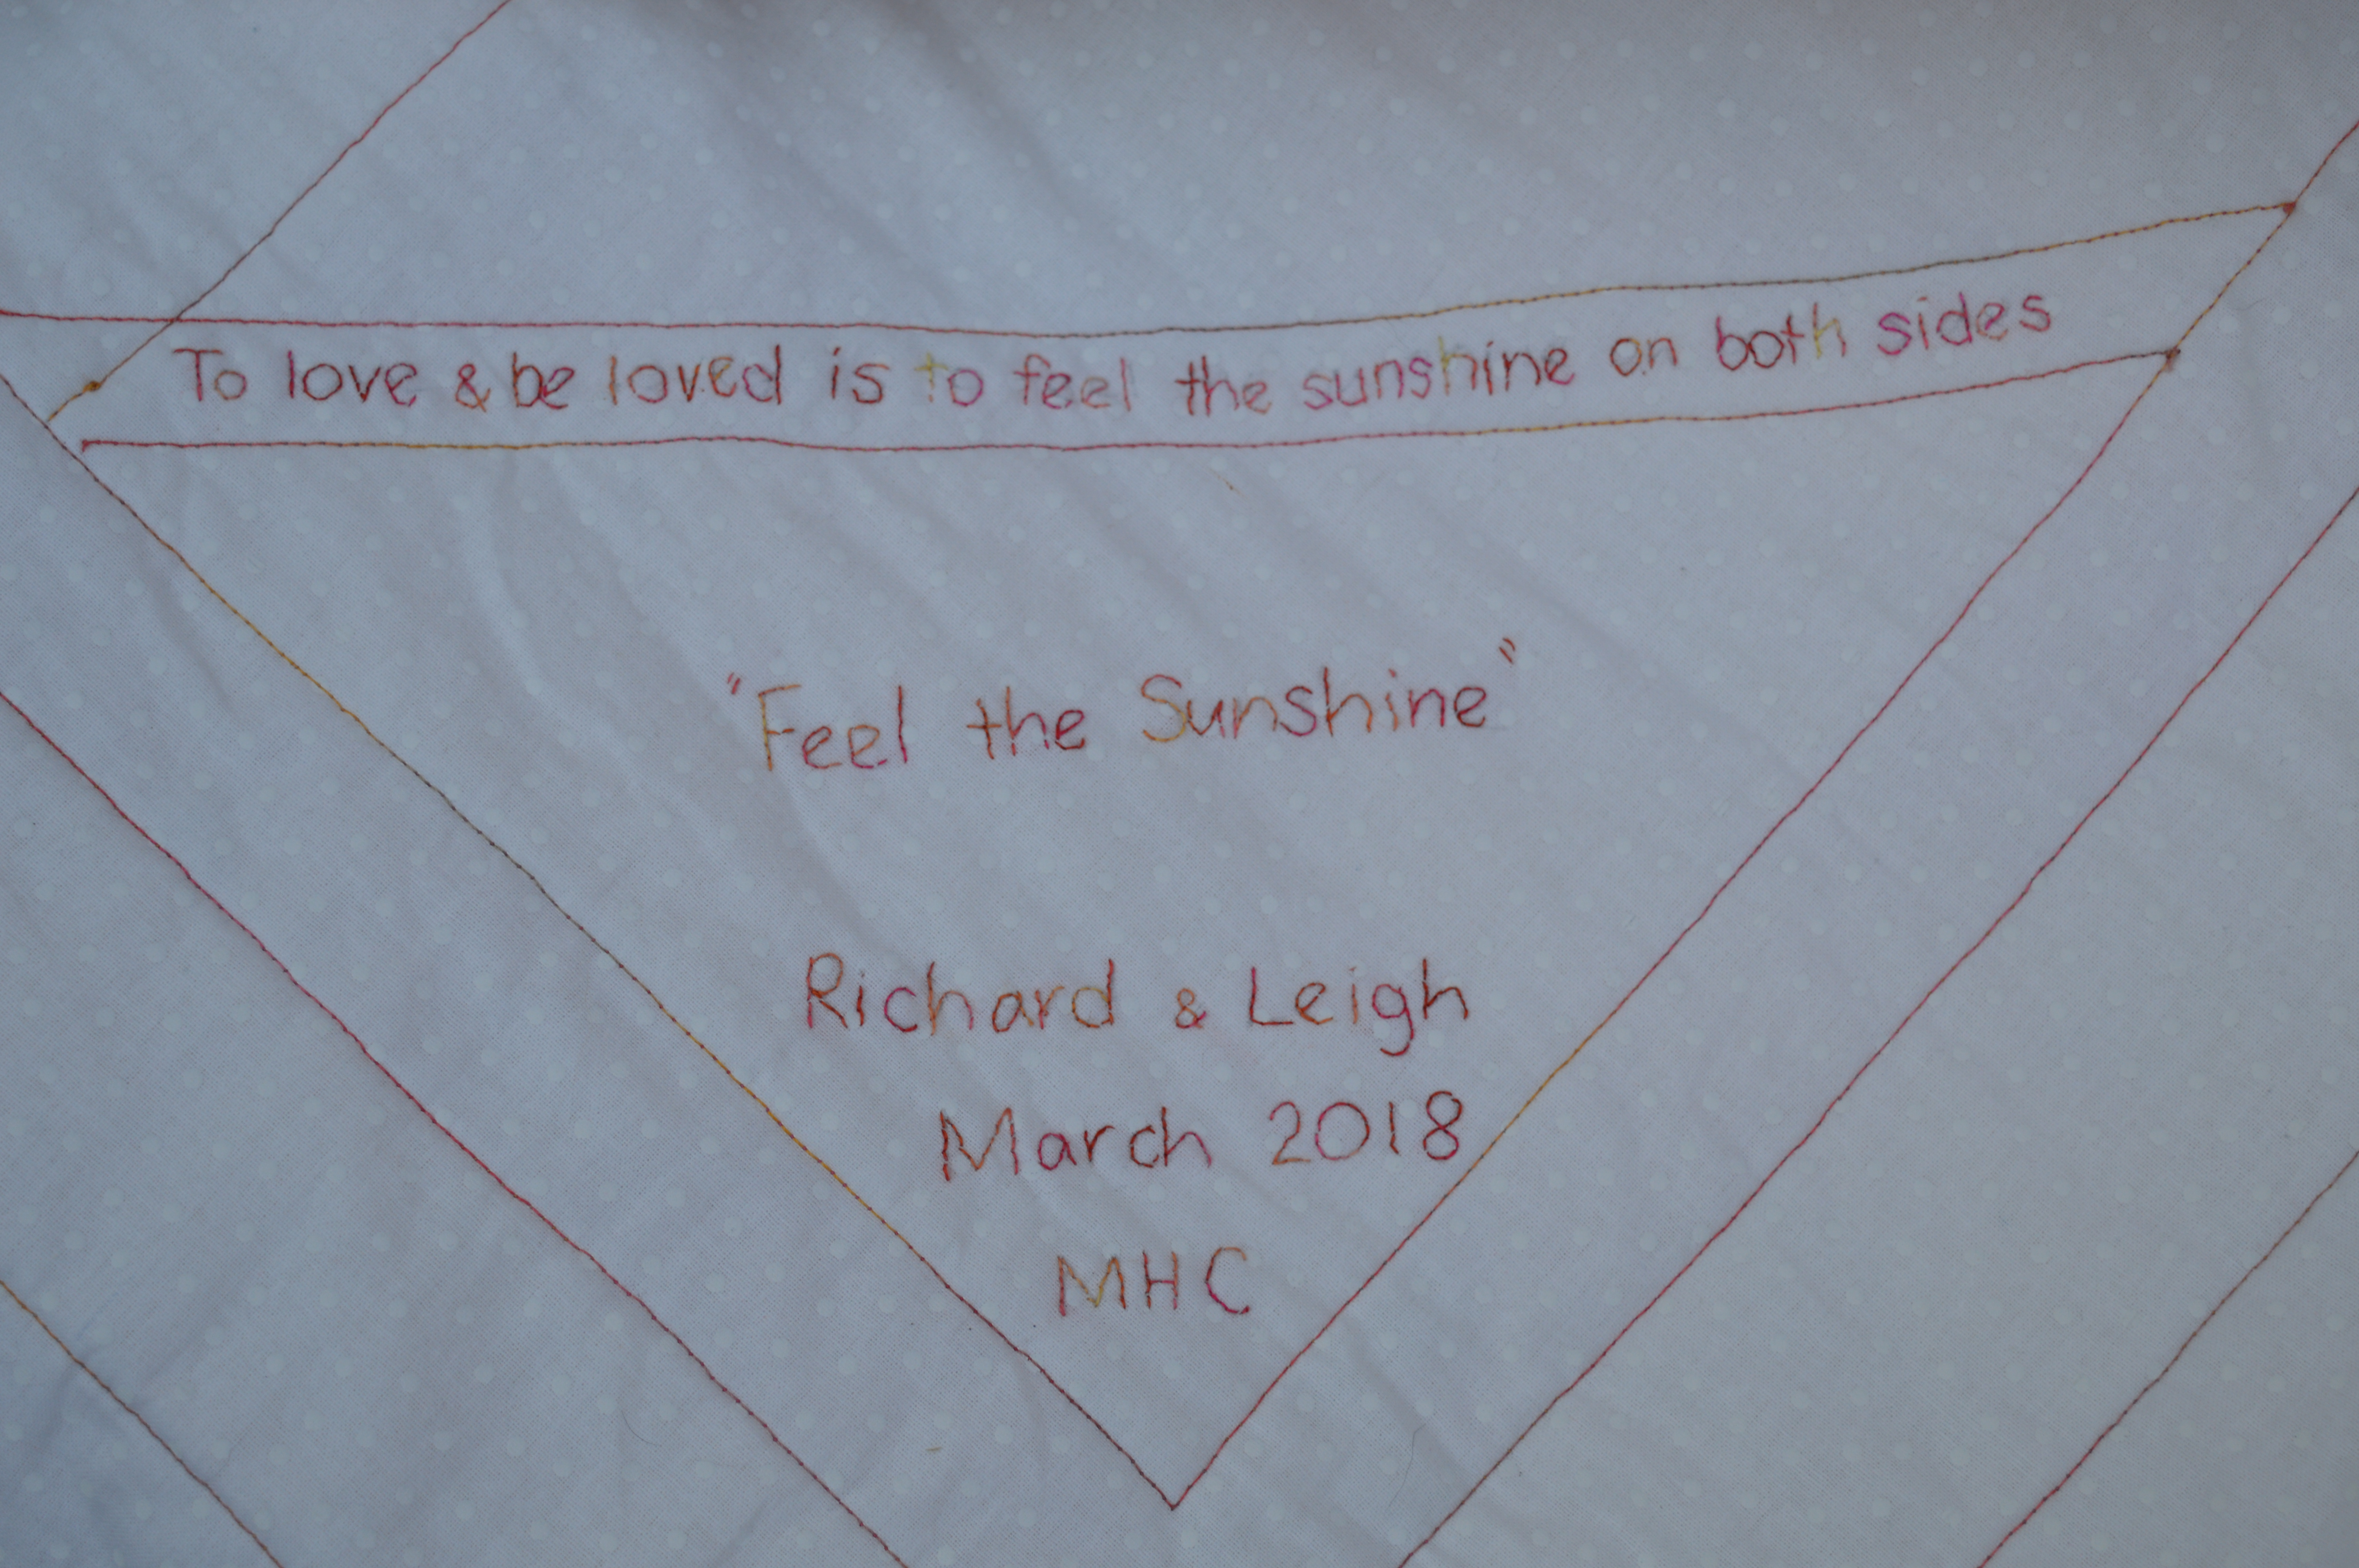 To love & be loved is to feel the sunshine on both sides
"Feel the Sunshine"
Richard & Leigh
March 2018
MHC